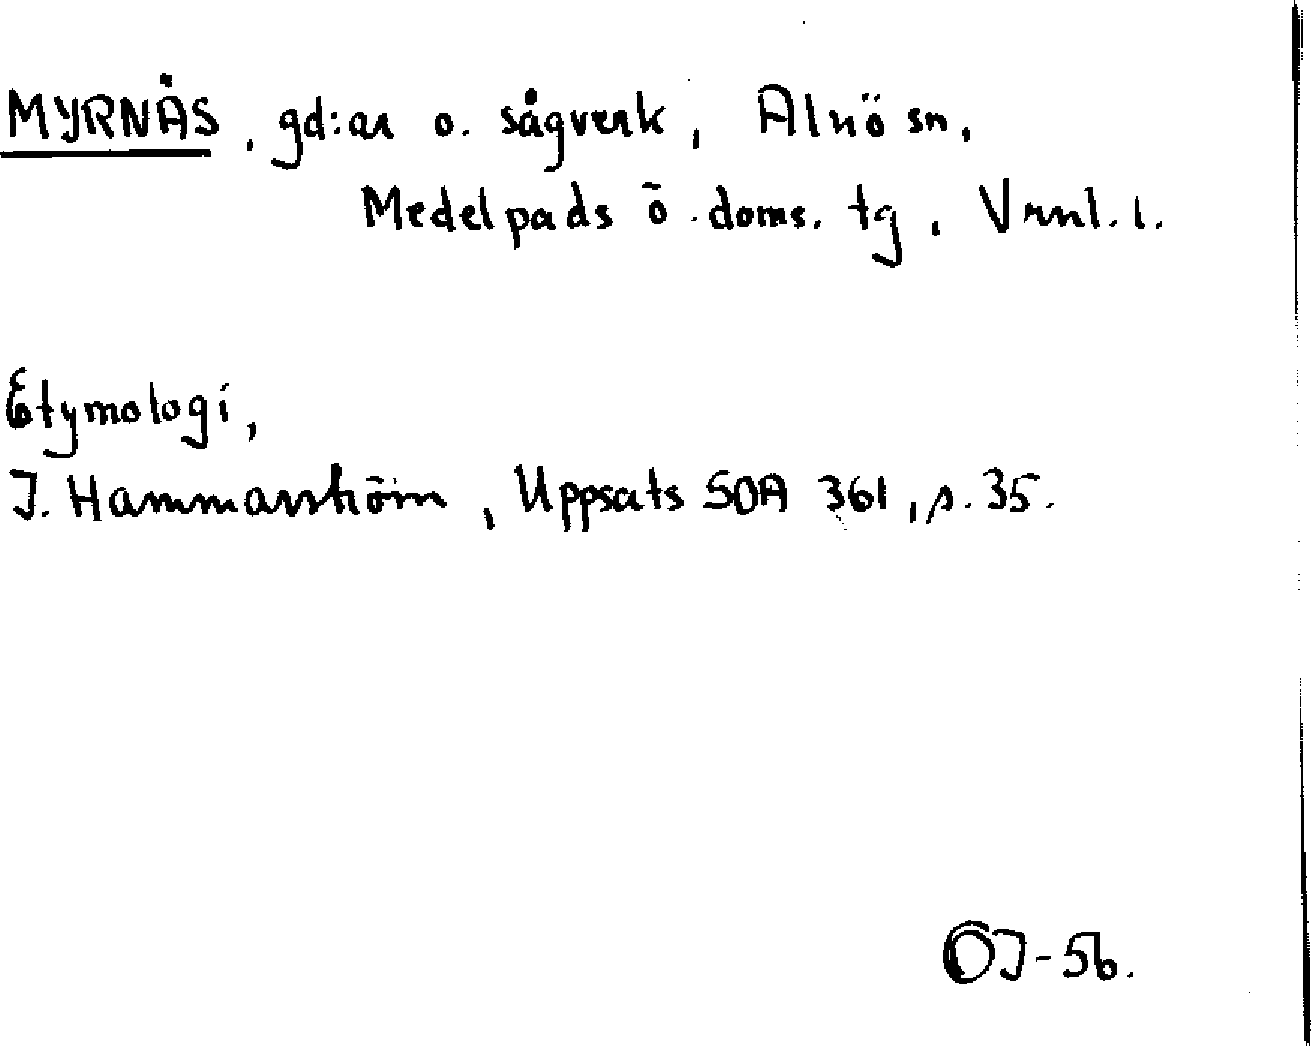 MYRNÄS, gd:ar o. sågverk, Alnö sn,
Medelpads ö. doms. tg, Vrnl. l.
Etymologi,
J. Hammarström, Uppsats SOA 361, s. 35.
OJ-56.